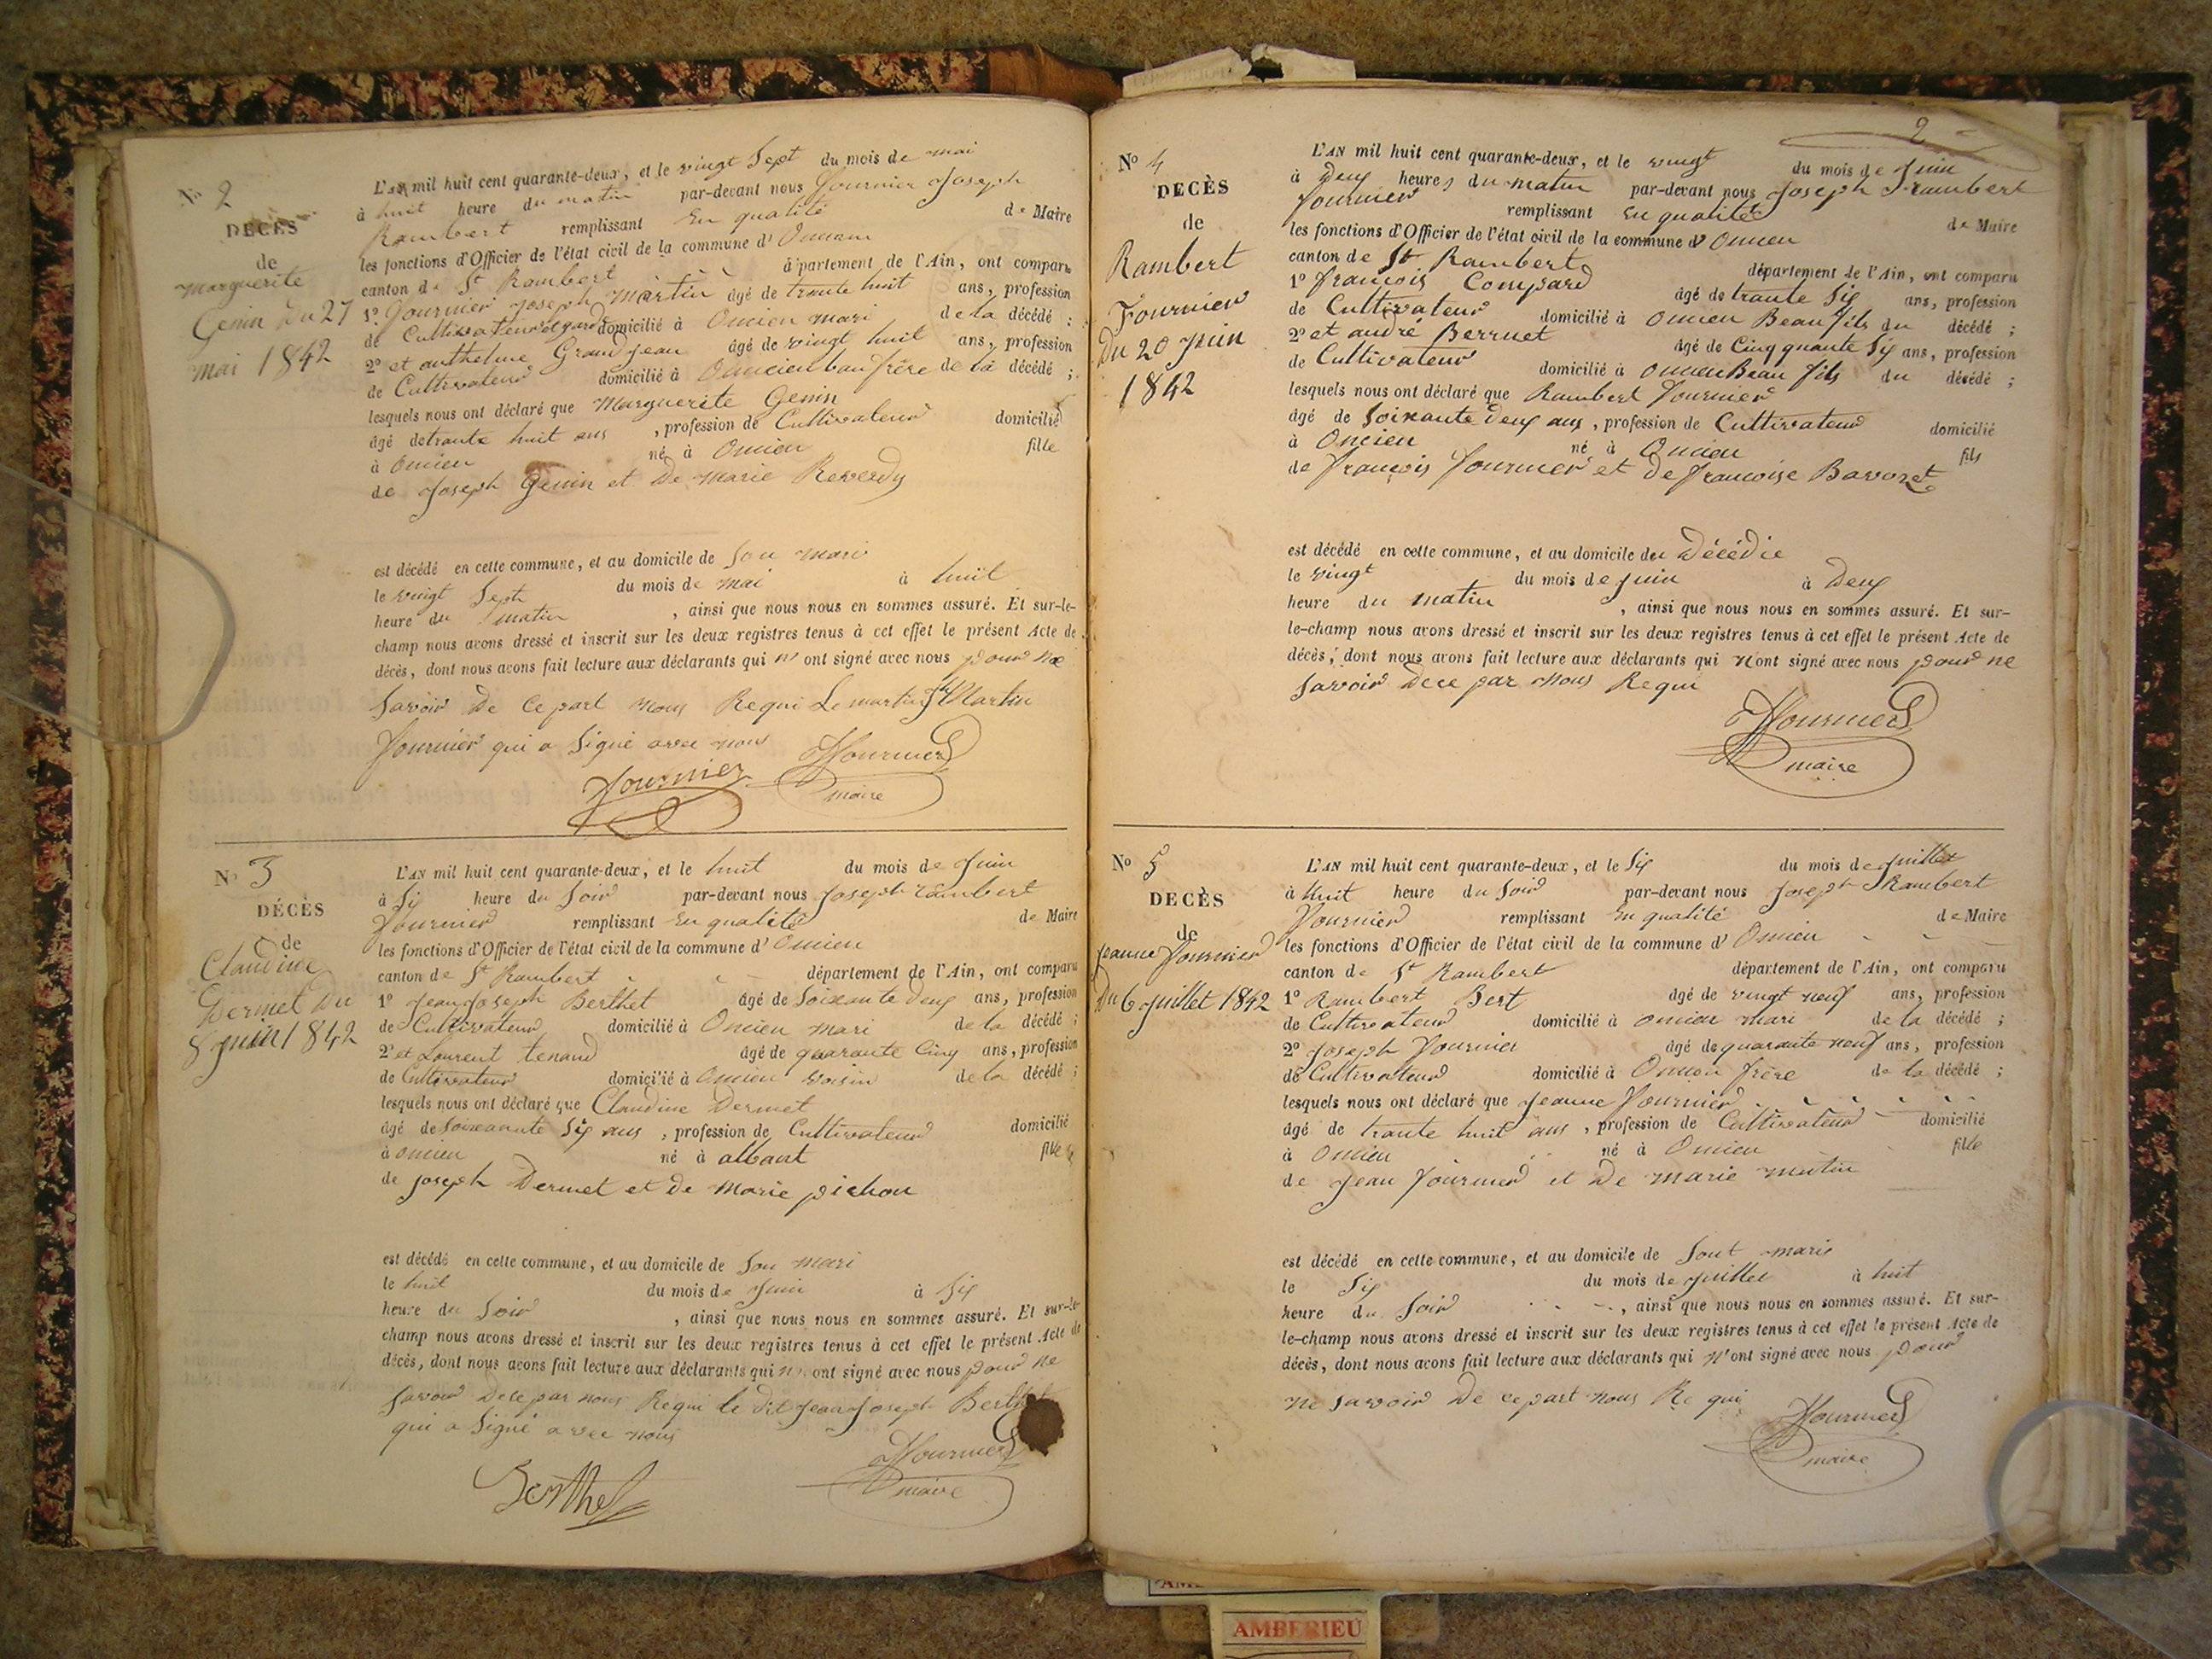 N° 2
DECÈS
de
Marguerite
Genin du 27
mai 1842
L'AN mil huit cent quarante-deux, et le vingt Sept du mois de mai
à huit heure du matin par-devant nous Fournier Joseph
Rambert remplissant En qualité de Maire
les fonctions d'Officier de l'état civil de la commune d' Oncieu
canton de St Rambert département de l'Ain, ont comparu
1° Fournier Joseph Martin âgé de trante huit ans, profession
de Cultivateur domicilié à Oncieu mari de la décédé ;
2° et anthelme Grand jean âgé de vingt huit ans, profession
de Cultivateur domicilié à Oncieu bau frère de la décédé ;
lesquels nous ont déclaré que Marguerite Genin
âgé de trante huit ans , profession de Cultivateur domicilié
à Oncieu né à Oncieu fille
de Joseph Genin et De Marie Reverdy
est décédé en cette commune, et au domicile de Son mari
le vingt Sept du mois de mai à huit
heure du matin , ainsi que nous nous en sommes assuré. Et sur-le-
champ nous avons dressé et inscrit sur les deux registres tenus à cet effet le présent Acte de
décès, dont nous avons fait lecture aux déclarants qui n' ont signé avec nous pour ne
Savoir De Ce part nous Requi Martin
Fournier qui a Signé avec nous
Fournier
Fournier
maire
N° 3
DÉCÈS
de
Claudine
Dermet Du
8 juin 1842
L'AN mil huit cent quarante-deux, et le huit du mois de Juin
à Six heure du Soir par-devant nous Joseph rambert
Fournier remplissant En qualité de Maire
les fonctions d'Officier de l'état civil de la commune d' Oncieu
canton de St Rambert département de l'Ain, ont comparu
1° Jean Joseph Berthet âgé de Soixante deux ans, profession
de Cultivateur domicilié à Oncieu mari de la décédé ;
2° et Laurent tenand âgé de quarante Cinq ans, profession
de Cultivateur domicilié à Oncieu voisin de la décédé ;
lesquels nous ont déclaré que Claudine Dermet
âgé de Soixante Six ans , profession de Cultivateur domicilié
à oncieu né à albant fille
de joseph Dermet et De Marie pichon
est décédé en cette commune, et au domicile de Son mari
le huit du mois de Juin à Six
heure du Soir , ainsi que nous nous en sommes assuré. Et sur-le-
champ nous avons dressé et inscrit sur les deux registres tenus à cet effet le présent Acte de
décès, dont nous avons fait lecture aux déclarants qui n' ont signé avec nous pour ne
Savoir Dece par nous Requi le dit Jean Joseph Berth
qui a Signé avec nous
Berthet
Fournier
maire
2
N° 4
DECÈS
de
Rambert
Fournier
Du 20 juin
1842
L'AN mil huit cent quarante-deux, et le vingt du mois de Juin
à Deux heures du matin par-devant nous Joseph Rambert
Fournier remplissant En qualité de Maire
les fonctions d'Officier de l'état civil de la commune d' Oncieu
canton de St Rambert département de l'Ain, ont comparu
1° françois Compard âgé de trante Six ans, profession
de Cultivateur domicilié à Oncieu Beau fils du décédé ;
2° et andré Berruet âgé de Cinq quante Six ans, profession
de Cultivateur domicilié à Oncieu Beau fils du décédé ;
lesquels nous ont déclaré que Rambert Fournier
âgé de Soixante deux ans , profession de Cultivateur domicilié
à Oncieu né à Oncieu fils
de françois Fournier et De françoise Bavozet
est décédé en cette commune, et au domicile du Décédé
le vingt du mois de Juin à Deux
heure du matin , ainsi que nous nous en sommes assuré. Et sur-
le-champ nous avons dressé et inscrit sur les deux registres tenus à cet effet le présent Acte de
décès, dont nous avons fait lecture aux déclarants qui n'ont signé avec nous pour ne
Savoir Dece par nous Requi
Fournier
maire
N° 5
DECÈS
de
Jeanne Fournier
Du 6 Juillet 1842
L'AN mil huit cent quarante-deux, et le Six du mois de Juillet
à huit heure du Soir par-devant nous Joseph Rambert
Fournier remplissant En qualité de Maire
les fonctions d'Officier de l'état civil de la commune d' Oncieu
canton de St Rambert département de l'Ain, ont comparu
1° Rambert Bert âgé de vingt neuf ans, profession
de Cultivateur domicilié à oncieu mari de la décédé ;
2° Joseph Fournier âgé de quarante neuf ans, profession
de Cultivateur domicilié à Oncieu frère de la décédé ;
lesquels nous ont déclaré que Jeanne Fournier
âgé de trante huit ans , profession de Cultivateur domicilié
à Oncieu né à Oncieu fille
de Jean Fournier et De marie martin
est décédé en cette commune, et au domicile de Sont marie
le Six du mois de Juillet à huit
heure du Soir , ainsi que nous nous en sommes assuré. Et sur-
le-champ nous avons dressé et inscrit sur les deux registres tenus à cet effet le présent Acte de
décès, dont nous avons fait lecture aux déclarants qui n'ont signé avec nous pour
ne savoir De ce part nous Re qui
Fournier
maire
AMBERIEU